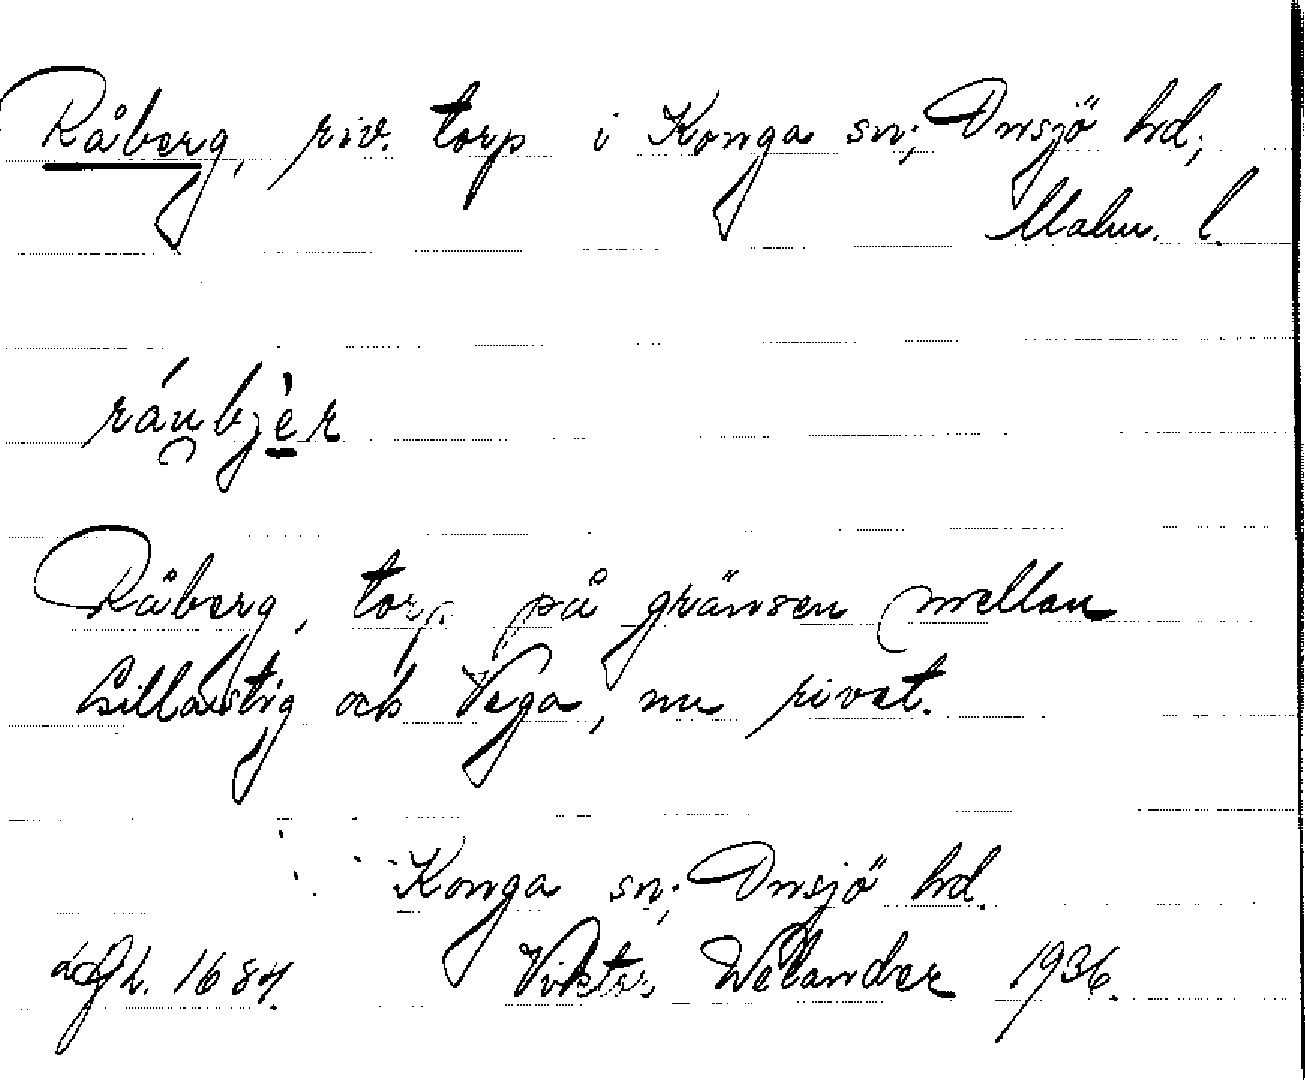 Råberg, riv. torp i Konga sn; Onsjö hd;
Malm. l.
råu̯bjèr
Råberg, torp på gränsen mellan
Lillarstig och Vega, nu rivet.
Konga sn; Onsjö hd.
Viktor Welander 1936.